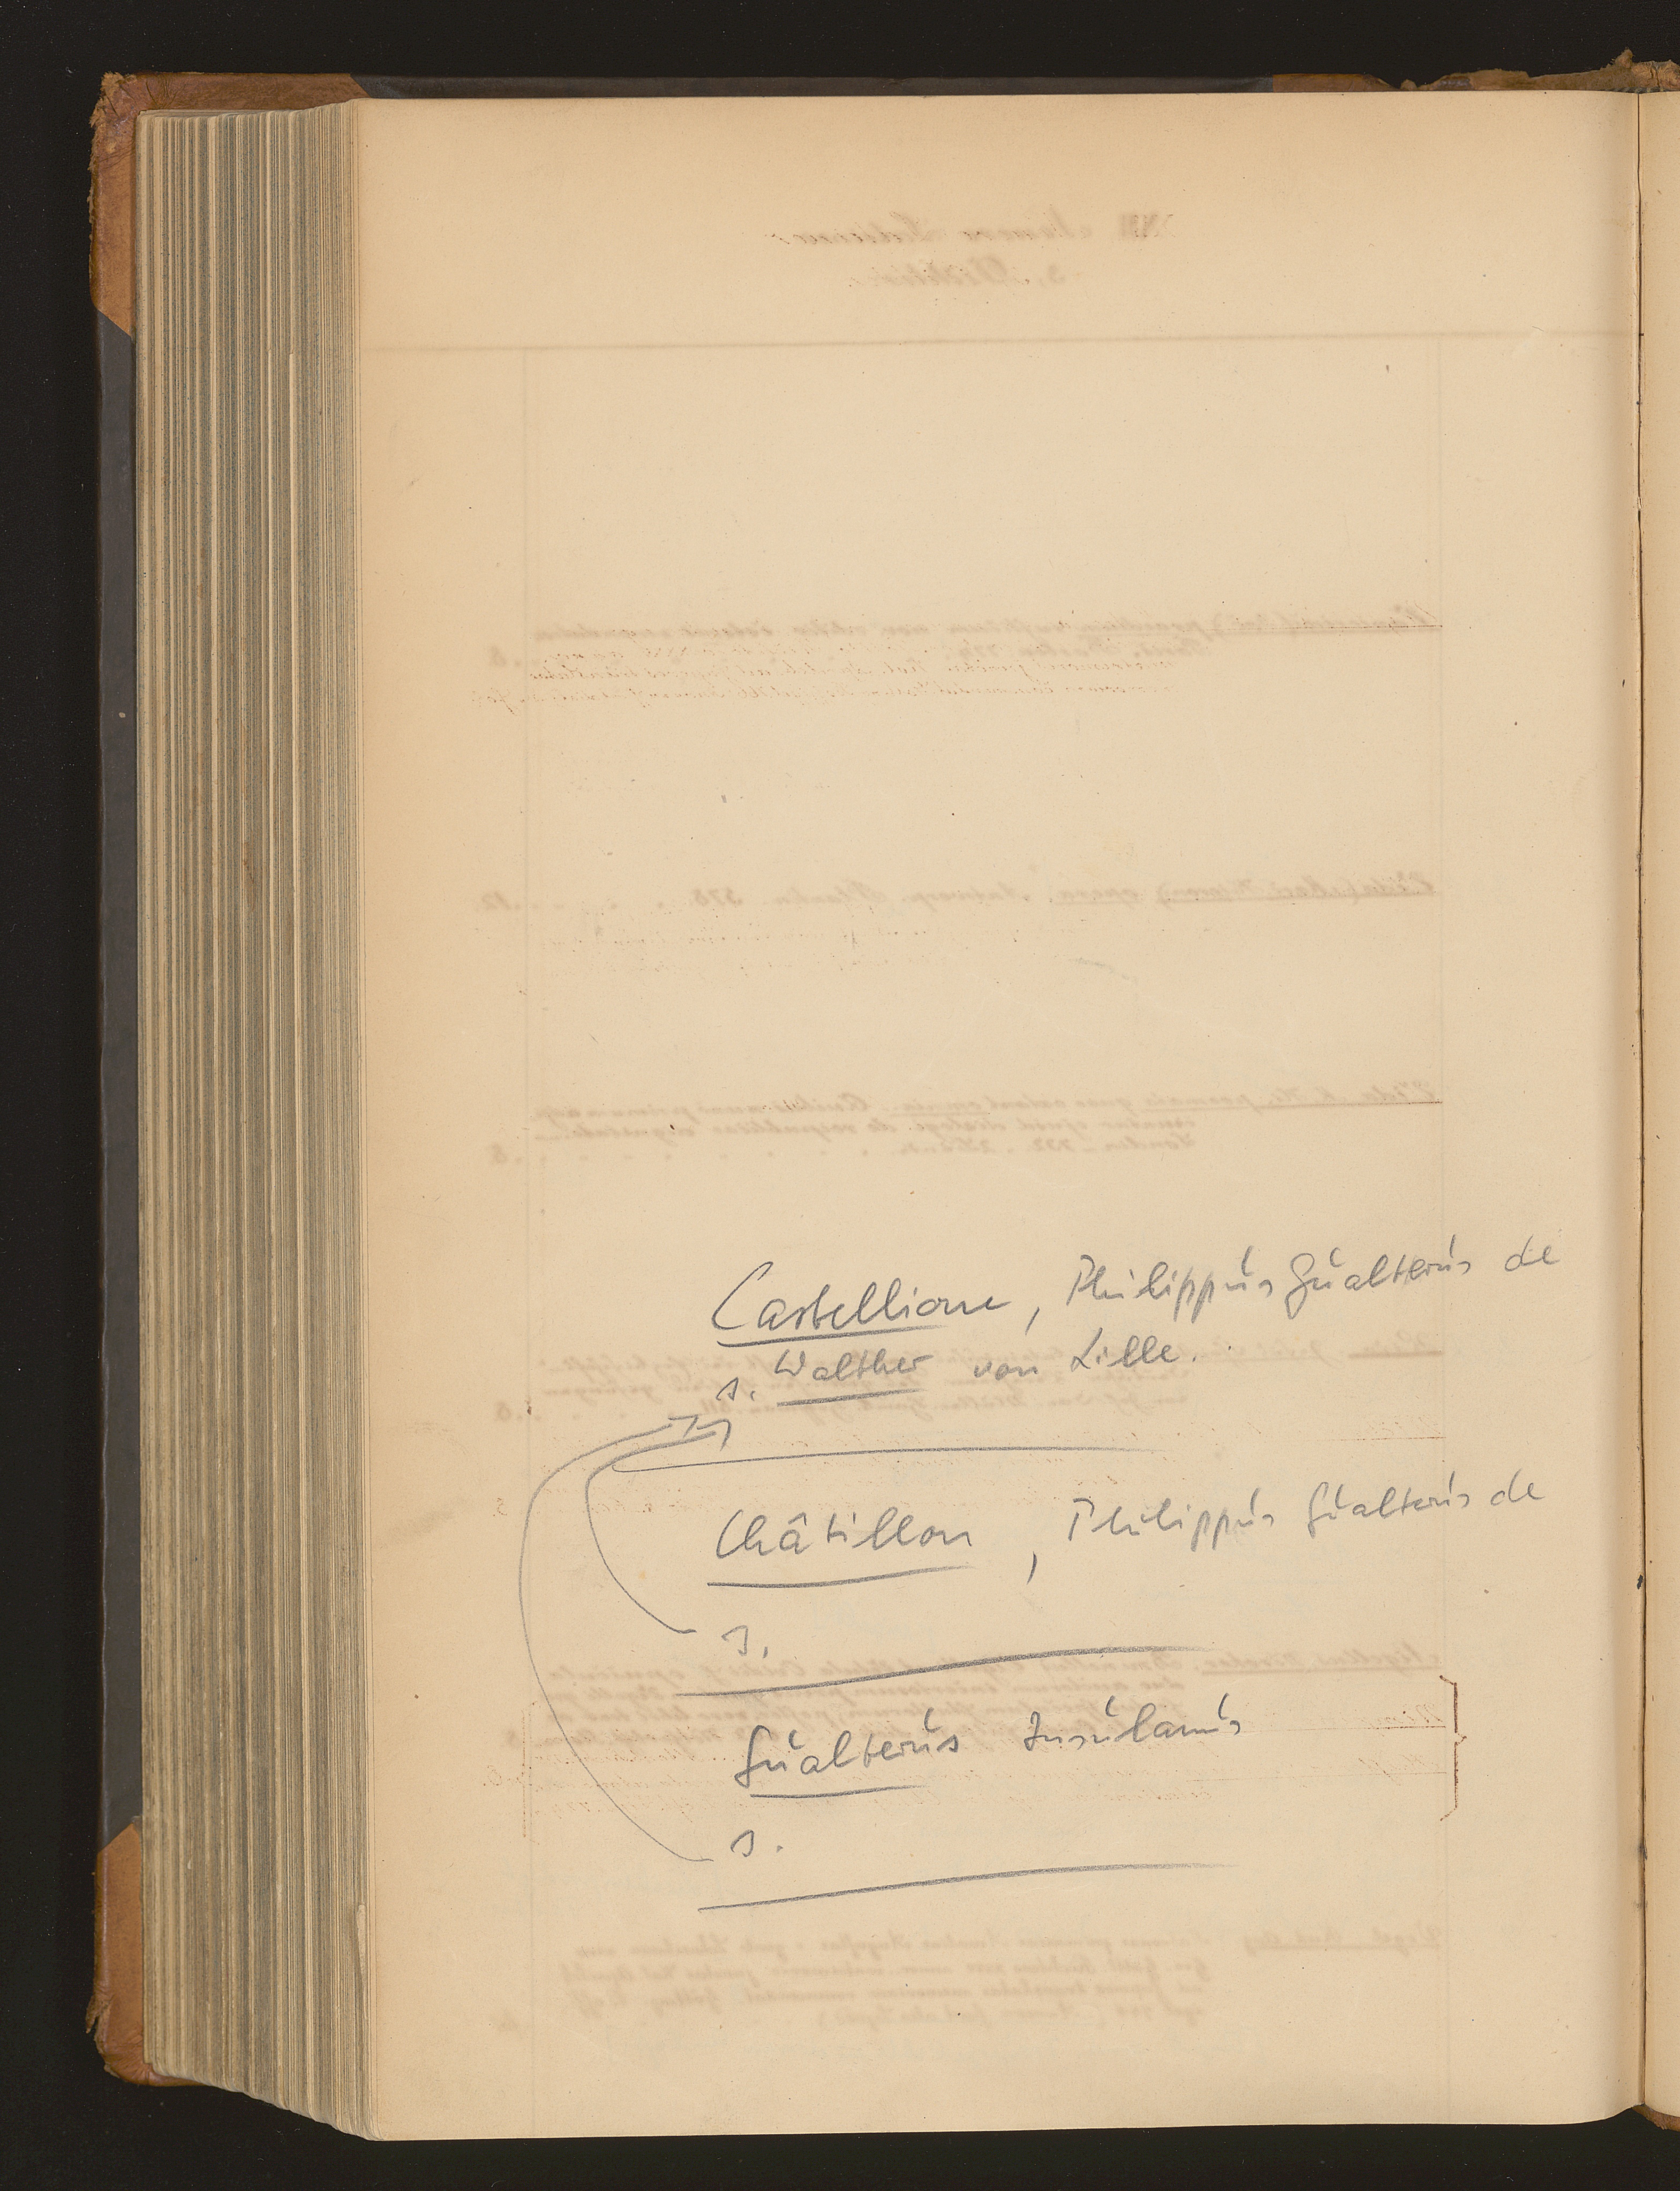 Castellione, Philippus Gualterus de
s. Walther von Lille.
Châtillon, Philippus Gualterus de
s.
Gualterus Insulanus
s.